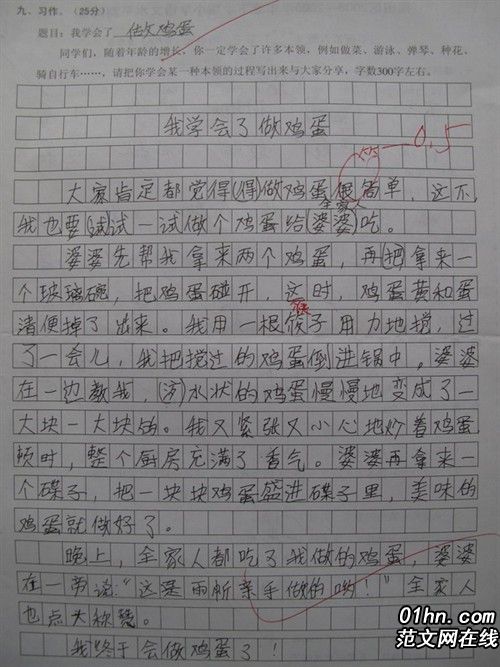 九、习作。(25分)
题目:我学会了 做鸡蛋
同学们,随着年龄的增长,你一定学会了许多本领,例如做菜、游泳、弹琴、种花、
骑自行车……,请把你学会某一种本领的过程写出来与大家分享,字数300字左右。
我学会了做鸡蛋
简 0.5
大家肯定都觉得(得)做鸡蛋很简单,这不,
全家人
我也要(试试一试做个鸡蛋给婆婆)吃。
婆婆先帮我拿来两个鸡蛋,再(把)拿来一
个玻璃碗,把鸡蛋碰开,这时,鸡蛋黄和蛋
清便掉了出来。我用一根筷子用力地搅,过
了一会儿,我把搅过的鸡蛋倒进锅中。婆婆
在一边教我,水状的鸡蛋慢慢地变成了一
大块一大块的。我又紧张又小心地炒着鸡蛋
顿时,整个厨房充满了香气。婆婆再拿来一
个碟子,把一块块鸡蛋盛进碟子里,美味的
鸡蛋就做好了。
晚上,全家人都吃了我做的鸡蛋,婆婆
在一旁说:“这是雨昕亲手做的哟!”全家人
也点大称赞。
我终于会做鸡蛋了!
01hn.com
范文网在线